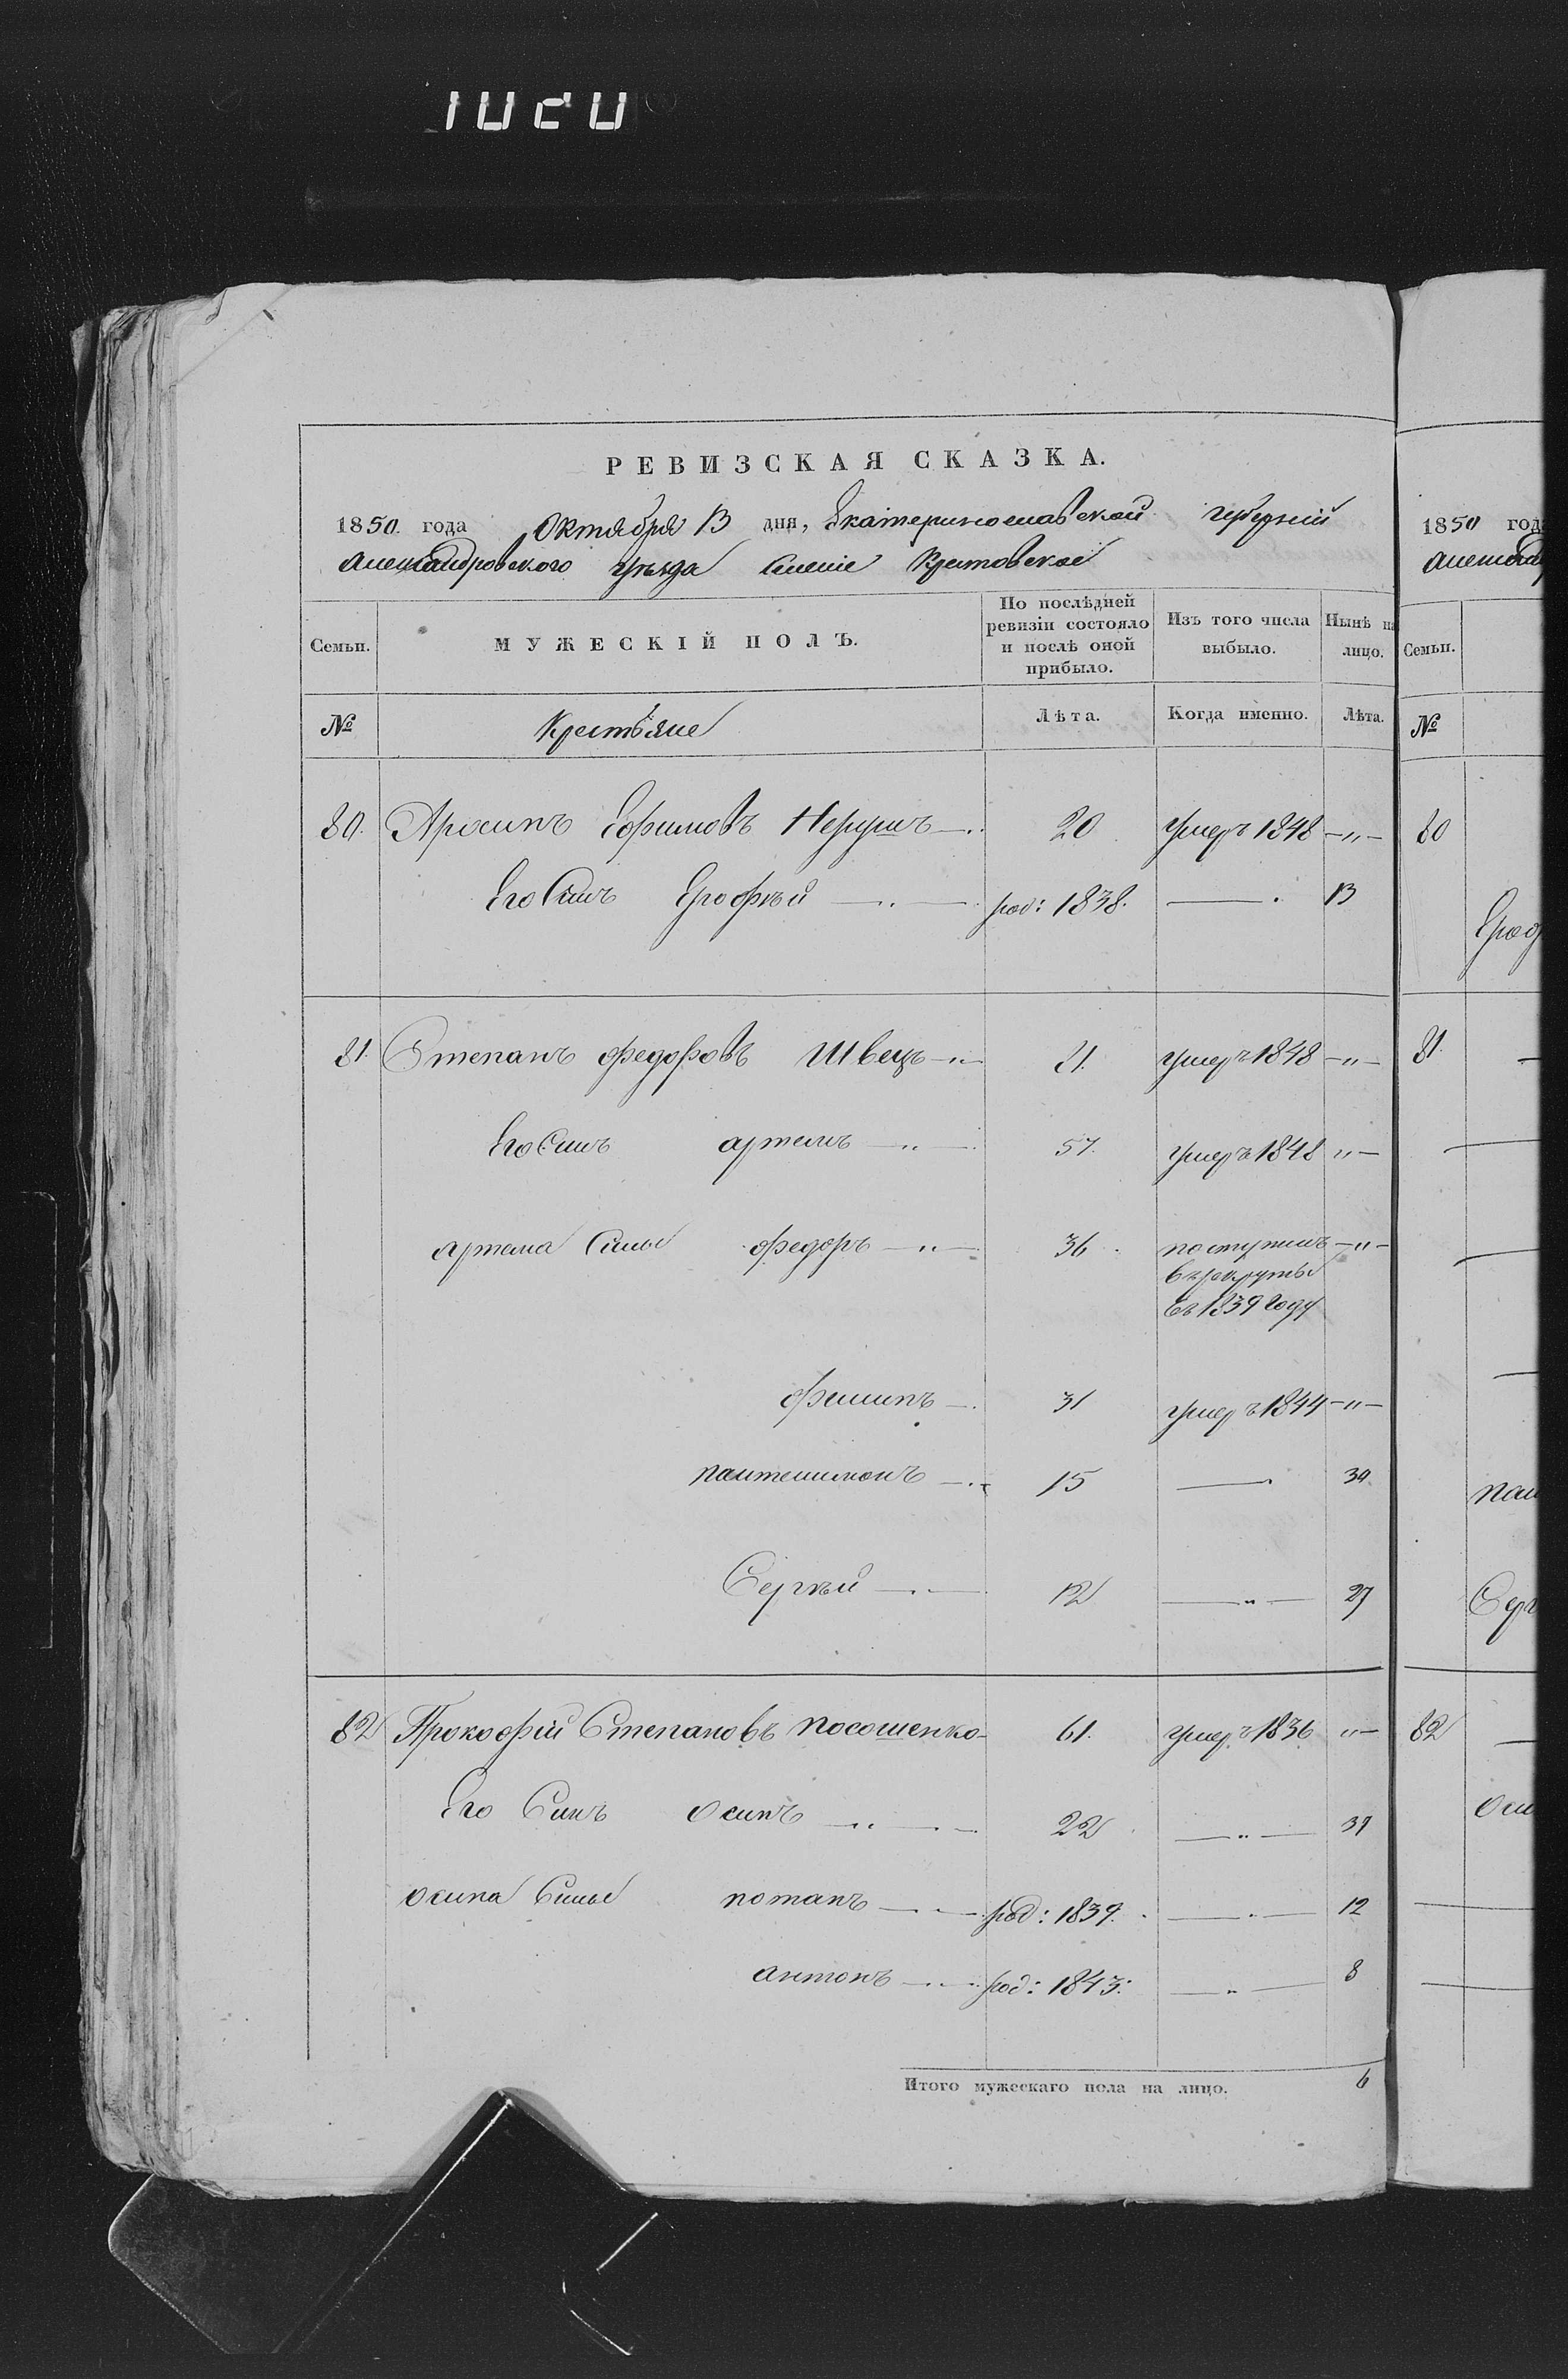 РЕВИЗСКАЯ СКАЗКА.
1850. года Октября 13 дня, Екатеринославской губерній
Александровского уѣзда Селеніе Крестовское
Семьи. МУЖЕСКІЙ ПОЛЪ. По послѣдней ревизіи состояло и послѣ оной прибыло. Изъ того числа выбыло. Нынѣ на лицо.
№ Крестьяне Лѣта. Когда именно. Лѣта.
80. Архипъ Ефимовъ Нерушъ 20 умеръ 1848 —„—
Его Синъ Ерофѣй род: 1838. — 13
81. Степанъ федоровъ Швецъ 81. умеръ 1848 —„—
Его Синъ артемъ —„— 57. умеръ 1848 „—
артема Сины федоръ —„— 36 поступилъ —„—
въ рекруты
въ 1839 году
филипъ — 31 умеръ 1844 —„—
пантелимонъ — 15 — 30
Сергѣй — 12 —„— 27
82 Прокофій Степановъ посошенко 61. умеръ 1836 „—
Его Синъ Осипъ —„— 22 —„— 37
осипа Сины потапъ — род: 1839. —„— 12
антонъ — род: 1843: —„— 8
Итого мужескаго пола на лицо. 6
1850 год
Семьи.
№
80
81.
Сер
82